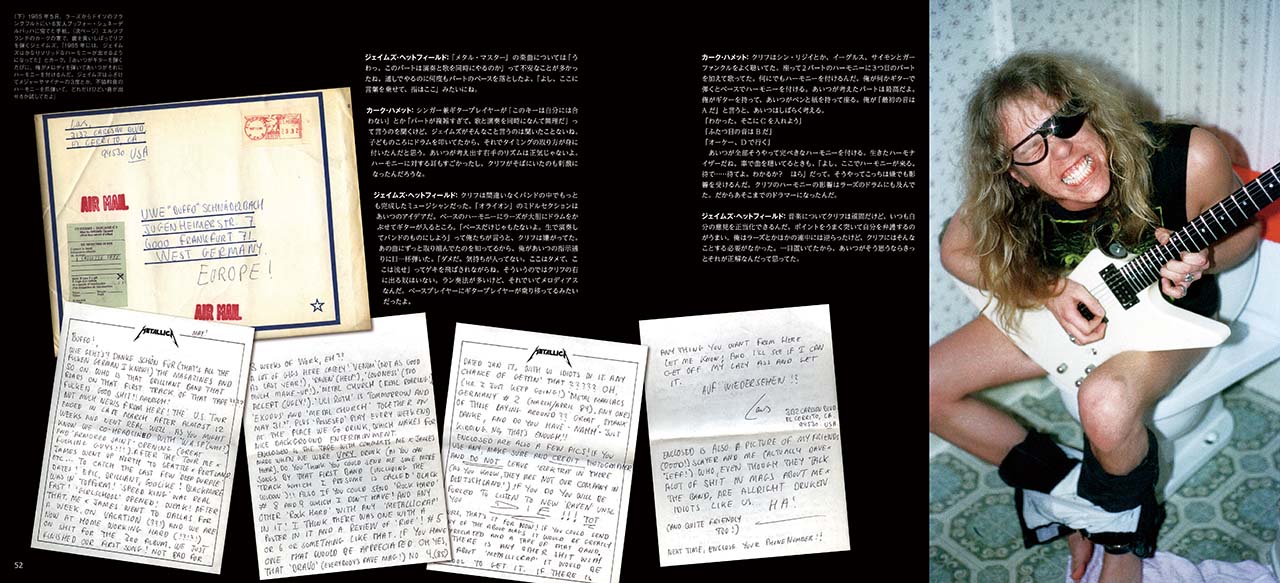 (下)1985年5月、ラーズからドイツのフラ
ンクフルトにいる友人ブッフォー・シュネーデ
ルバッハに宛てた手紙。
ジェイムズ・ヘットフィールド:「メタル・マスター」の楽曲については「う
わっ、このパートは演奏と歌を同時にやるのか」って不安なことが多かっ
たね。通しでやるのに何度もパートのペースを落としたよ。「よし、ここに
言葉を乗せて、指はここ」みたいにね。
カーク・ハメット:シンガー兼ギタープレイヤーが「このキーは自分には合
わない」とか「パートが複雑すぎて、歌と演奏を同時になんて無理だ」っ
て言うのを聞くけど、ジェイムズがそんなこと言うのは聞いたことないね。
子どものころにドラムを叩いてたから、それでタイミングの取り方が身に
付いたんだと思う。あいつが考え出す右手のリズムは正気じゃないよ。
ハーモニーに対する耳もすごかったし、クリフがそばにいたのも刺激に
なったんだろうな。
ジェイムズ・ヘットフィールド:クリフは間違いなくバンドの中でもっと
も完成したミュージシャンだった。「オライオン」のミドルセクションは
あいつのアイデアだ。ベースのハーモニーにラーズが大胆にドラムをか
ぶせてギターが入るところ。「ベースだけじゃもたないよ。生で演奏し
てバンドのものにしよう」って俺たちが言うと、クリフは嫌がってた。
あの曲にずっと取り組んでたのを知ってるから、俺があいつの指示通
りに目一杯弾いた。「ダメだ、気持ちが入ってない。ここはタメて、こ
こは流せ」ってゲキを飛ばされながらね。そういうのではクリフの右
に出る奴はいない。ラン奏法が多いけど、それでいてメロディアス
なんだ。ベースプレイヤーにギタープレイヤーが乗り移ってるみたい
だったよ。
カーク・ハメット:クリフはシン・リジィとか、イーグルス、サイモンとガー
ファンクルをよく聴いてた。座って2パートのハーモニーに3つ目のパート
を加えて歌ってた。何にでもハーモニーを付けるんだ。俺が何かギターで
弾くとベースでハーモニーを付ける。あいつが考えたパートは最高だよ。
俺がギターを持って、あいつがペンと紙を持って座る。俺が「最初の音は
Aだ」と言うと、あいつはしばらく考える。
「わかった、そこにCを入れよう」
「ふたつ目の音はBだ」
「オーケー、Dで行く」
あいつが全部そうやって完ぺきなハーモニーを付ける。生きたハーモナ
イザーだね。車で曲を聴いてるときも、「よし、ここでハーモニーが来る。
待て……待てよ。わかるか? ほら」だって。そうやってこっちは嫌でも影
響を受けるんだ。クリフのハーモニーの影響はラーズのドラムにも及んで
た。だからあそこまでのドラマーになったんだ。
ジェイムズ・ヘットフィールド:音楽についてクリフは頑固だけど、いつも自
分の意見を正当化できるんだ。ポイントをうまく突いて自分を弁護するの
がうまい。俺はラーズとかほかの連中には逆らったけど、クリフにはそんな
ことする必要がなかった。一目置いてたから、あいつがそう思うならきっ
とそれが正解なんだって思ってた。
Lars,
3132 CARLSON BLVD
El CERRITO, CA
94530 USA
AIR MAIL
UWE "BUFFO" SCHNÄDERBACH
JUGENHEIMERSTR 7
6000 FRANKFURT 71
WEST GERMANY
EUROPE!
AIR MAIL
METALLICA
MAY!
BUFFO!,
WIE GEHTS?! DANKE SCHÖN FÜR (THAT'S ALL THE
FUCKEN GERMAN I KNOW!) THE MAGAZINES AND
SO ON. WHO IS THAT BRILLIANT BAND THAT
ROARS ON THAT FIRST TRACK OF THAT TAPE
NOT MUCH NEWS FROM HERE! THE U.S. TOUR
ENDED IN LATE MARCH AFTER ALMOST 12
WEEKS AND WENT REAL WELL. AS YOU MIGHT
KNOW WE CO-HEADLINED WITH W.A.S.P
AND 'ARMORED SAINT' OPENING (GREAT
AFTER THE TOUR ME +
JAMES WENT UP NORTH TO SEATTLE + PORTLAND
TO CATCH THE LAST 'DEEP PURPLE'
DATES! EPIC, BRILLIANT, GODLIKE! BLACKMORE
WAS IN 'TOPFORM'! 'SPEED KING' WAS REAL
FAST! 'GIRLSCHOOL' OPENED! OUCH! AFTER
THAT, ME + JAMES WENT TO DALLAS FOR
A WEEK, ON VACATION (??!) AND WE ARE
NOW AT HOME WORKING HARD
ON SHIT FOR THE 3RD ALBUM. WE JUST
FINISHED OUR FIRST SONG! NOT BAD FOR
3 WEEKS OF WORK, EH??
A LOT OF GIGS HERE LATELY! 'VENOM' (NOT AS GOOD
AS LAST YEAR!), 'RAVEN' (HELP!), 'LOUDNESS' (TOO
MUCH MAKE-UP!), 'METAL CHURCH' (REAL BORING!)
ACCEPT (UGLY!) 'ULI ROTH' IS TOMORROW AND
'EXODUS' AND 'METAL CHURCH' TOGETHER ON
MAY 31! PLUS 'POSSESSED' PLAY EVERY WEEKEND
AT THE PLACE WE GO DRINK, WHICH MAKES FOR
NICE BACKGROUND ENTERTAINMENT
ENCLOSED IS THE TAPE WITH COMMENTS ME + JAMES
MADE WHEN WE WERE VERY DRUNK (AS YOU CAN
HEAR). DO YOU THINK YOU COULD SEND ME SOME MORE
SONGS BY THAT FIRST BAND (INCLUDING THE
TRACK WHICH I PRESUME IS CALLED 'BLACK
WIDOW'?)!! ALSO IF YOU COULD SEND 'ROCK HARD'
# 8 AND 9 WHICH I DON'T HAVE! AND ANY
OTHER 'ROCK HARD' WITH ANY 'METALLICRAP'
IN IT! I THINK THERE WAS ONE WITH A
POSTER IN IT AND A REVIEW OF 'RIDE'! # 5
OR 6 OR SOMETHING LIKE THAT. IF YOU HAVE
ONE THAT WOULD BE APPRECIATED. OH YES,
THAT 'BRAVO'
METALLICA
DATED JAN 17, WITH W IDIOTS IN IT. ANY
CHANCE OF GETTIN' THAT ????? OH
(HA I JUST KEEP GOING!) 'METAL MANIACS
GERMANY' # 2 (MARCH/APRIL 84), ANY ONES
OF THESE LAYING AROUND? GREAT! THANK
DANKE, AND DO YOU HAVE - NAHH - JUST
KIDDING. NO THAT'S ENOUGH!!
ENCLOSED ARE ALSO A FEW PICS! IF YOU
USE ANY MAKE SURE AND CREDIT PHOTOGRAPHER
AND DO NOT LEAVE 'ELEKTRA' IN THERE
(AS YOU KNOW, THEY ARE NOT OUR COMPANY IN
OLD DEUTSCHLAND!) IF YOU DO YOU WILL BE
FORCED TO LISTEN TO NEW RAVEN UNTIL
YOU DIE !!! TOT
WELL, THAT'S IT FOR NOW! IF YOU COULD SEND
ANY OF THE ABOVE MAGS IT WOULD BE GREATLY
APPRECIATED AND A TAPE OF THAT BAND.
THERE IS ANY OTHER SHIT WITH
ABOUT 'METALLICRAP' IT WOULD BE
COOL TO GET IT. IF THERE IS
ANY THING YOU WANT FROM HERE
LET ME KNOW! AND I'LL SEE IF I CAN
GET OFF MY LAZY ASS AND GET
IT.
AUF WIEDERSEHEN!!
Lars
3132 CARLSON BLVD
EL CERRITO, CA
94530 USA
ENCLOSED IS ALSO A PICTURE OF MY FRIENDS
(OOOO!) SLAYER AND ME (ACTUALLY DAVE +
JEFF!) WHO, EVEN THOUGH THEY TALK
ALOT OF SHIT IN MAGS ABOUT ME +
THE BAND, ARE ALLRIGHT DRUNKEN
IDIOTS LIKE US... HA!
(AND QUITE FRIENDLY
TOO!)
NEXT TIME, ENCLOSE YOUR PHONENUMBER!!
52